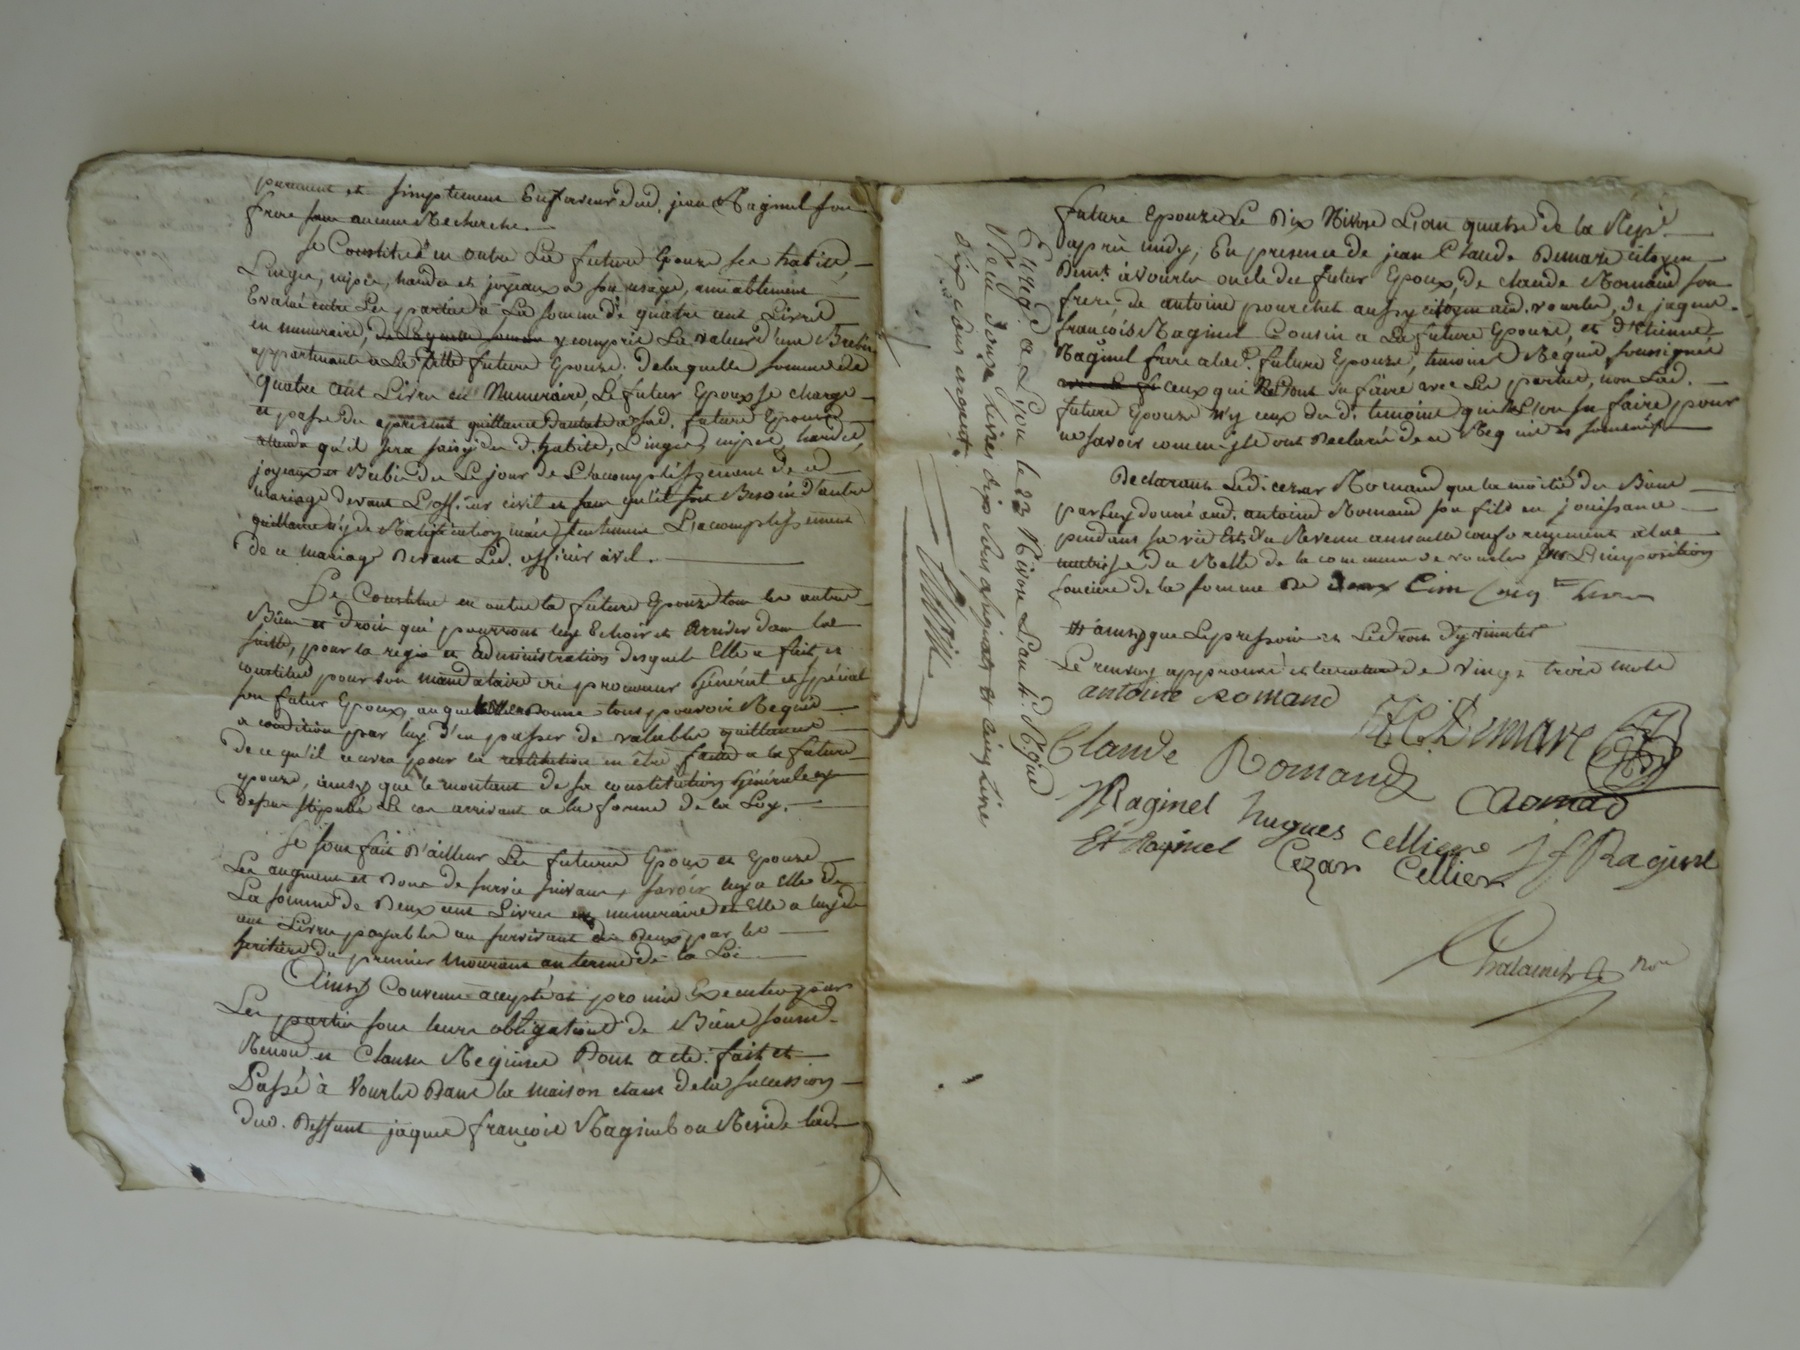 purement et simplement En faveur dud. jean Raginel son
frere sans aucune Recherche.
Se Constitue en outre La future Epouze ses habits,
Linges, nipes, hardes et joyeaux a son usage, amiablement
Evalué entre Les parties a La somme de quatre cent Livres
en numeraire, y compris La valeur d'une Brebis
appartenante a La future Epouze. de laquelle somme de
quatre cent Livres en Numeraire, Le futur Epoux se charge
et passe du apresent quittance dautant a sad. future Epouze
qu'il sera saisy des d. habits, Linges, nipes, hardes,
joyeaux et Brebis des Le jour de L'accomplissement de ce
mariage devant L'officier civil et sans qu'il soit Besoin d'autre
quittance n'y de Ratification, mais seulement L'accomplissement
de ce mariage devant Led. officier civil.
Se Constitue en outre la future Epouze tous les autres
Biens et droits qui pourront luy Echoir et arriver dans la
suitte, pour la régie et administration desquels Elle a fait et
constitué pour son mandataire et procureur Général et spécial
son futur Epoux, auquel Elle Donne tous pouvoir Requis
a condition par luy d'en passer de valable quittance
de ce qu'il recevra pour la restitution en être faite a la future
epouze, ainsy que le montant de sa constitution Générale cy
dessus stipulé Le cas arrivant a la forme de la Loy.
Se sont fait d'ailleurs Les futurs Epoux et Epouze
Les augment et Dons de survie suivant, savoir luy a Elle de
La somme de Deux cent Livres en numeraire et Elle a luy de
cent Livres payables au survivant des Deux par les
heritiers du premier mourant au terme de la Loi
Ainsy Convenu accepté et promis Executer par
Les parties sous leurs obligations de Biens soumis.
Renon. et Clauses Requises Dont acte. fait et
Passé à Vourles Dans la maison etant de la succession
dud. Deffunt jaques françois Raginel ou Réside lad.
future Epouze Le Dix Nivose L'an quatre de la Rep.
après midy, En presence de jean Claude Demare citoyen
Demt. à Vourles oncle du futur Epoux, de claude Romand son
frere, de antoine pourchet aussy citoyen aud. vourles, de jaques
françois Raginel Cousin a La future Epouze, et d'Etienne
Raginel frere a lad. future Epouze, temoins Requis soussignés
ceux qui l'ont su faire avec Les parties, non Lad.
future Epouze n'y ceux des d. temoins qui n'ont su faire, pour
ne savoir comme ils ont Declarés de ce Requis et sommés
Declarant Led. cezar Romand que la moitié des Biens
par luy donné aud. antoine Romand son fils en jouissance
pendant sa vie Est du Revenu annuelle conformement a la
matrice du Rolle de la commune de vourles sur L'imposition
fonciere de la somme de Cinquante Livres
ainsy que Le pressoir et Le droit d'y
Le renvoy approuvé et la rature de vingt trois mots
antoine Romand
JC. Demare
Claude Romand
CRomand
JRaginel hugues cellier
JfRaginel
Et Raginel Cezar Cellier
Chalandre Nore
Enregé. a Lyon le 23 Nivose L'an 4. Rque
Recu Douze livres dix sous assignats et cinq livres
dix sous argent.